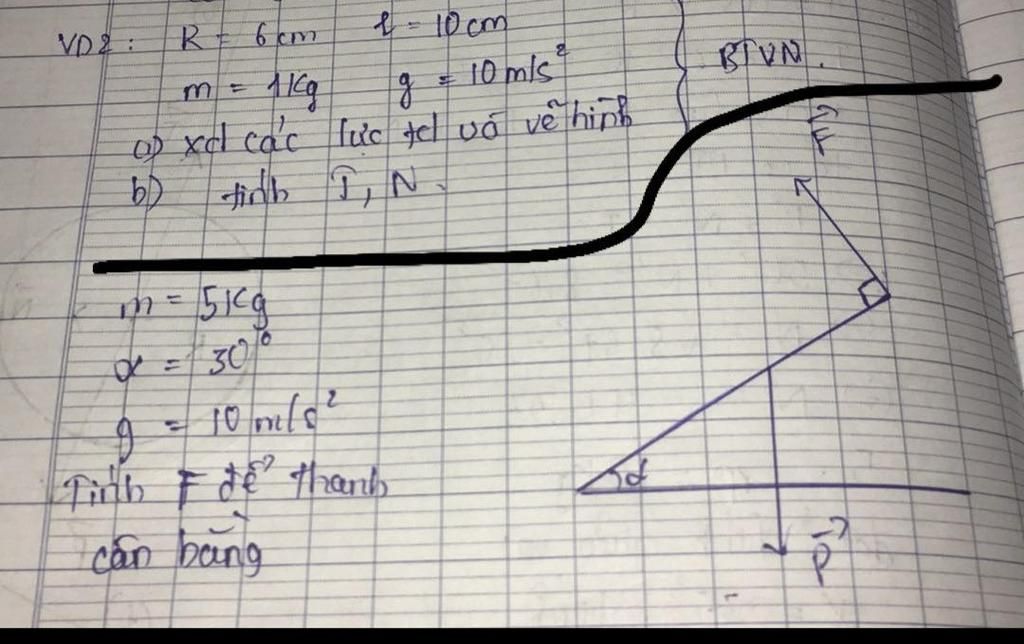 VD2: R = 6cm l = 10cm
m = 1Kg g = 10m/s²
BTVN.
a) xđ các lực td và vẽ hình
b) tính T, N.
F⃗
m = 5Kg
α = 30°
g = 10m/s²
α
Tính F để thanh
cân bằng
P⃗